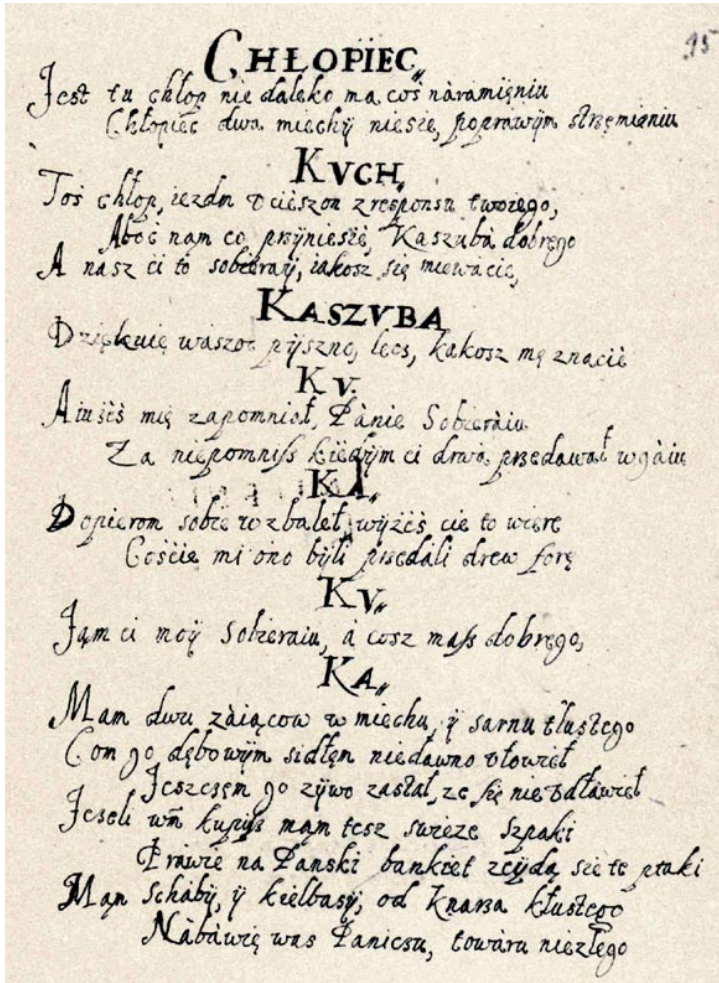 15
CHŁOPIEC„
Jest tu chłop nie daleko ma coś nàramięniu
Chłopiec dwa miechÿ niesie, poprawÿm strzęmianiu
KVCH„
Toś chłop, iezdm vcieszon zresponsu twoięgo,
Aboć nąm co przÿniesie, Kaszubà dobrego
A nasz ci to sobieraÿ, iakosz się miewacie,
KASZVBA
Dziękuię waszoć pÿszno, lecs, kakosz mę znacie
KV.
Aiużeś mię zapomnioł, Pànie Sobieràiu
Za niepomniſs kiedÿm ci drwa przedawał wgàiu
KA„
Dopierom sobie wzbaleł, wÿżeś cie to wiere
Coście mi ono bÿli przedali drew forę
KV„
Jąm ci moÿ Sobieraiu, à cosz maſs dobręgo,
KA„
Mam dwu zàiącow w miechu, ÿ sarnu tłustego
Com go dębowÿm sidłęn niedawno vłowieł
Jeszcesęm go zÿwo zastał, ze się nie vdławieł
Jeseli wm̃ kupiſs mąm tesz swieze Szpaki
Prawie na Panski bankiet zeÿdą sie te ptaki
Mąn Schabÿ, ÿ kiełbasÿ, od Knarza kłustęgo
Nàbawię was Panicsu, towàru niezłego